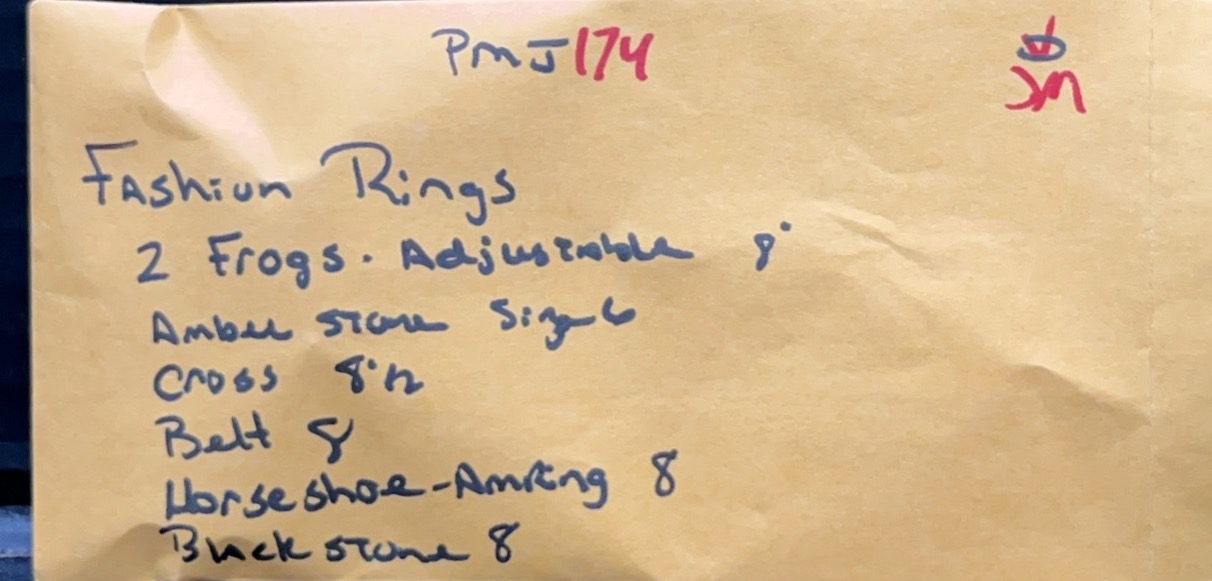 PMJ174
JM
Fashion Rings
2 Frogs. Adjustable 8
Amber stone Size 6
Cross 8 1/2
Belt 8
Horseshoe - 8
Black stone 8